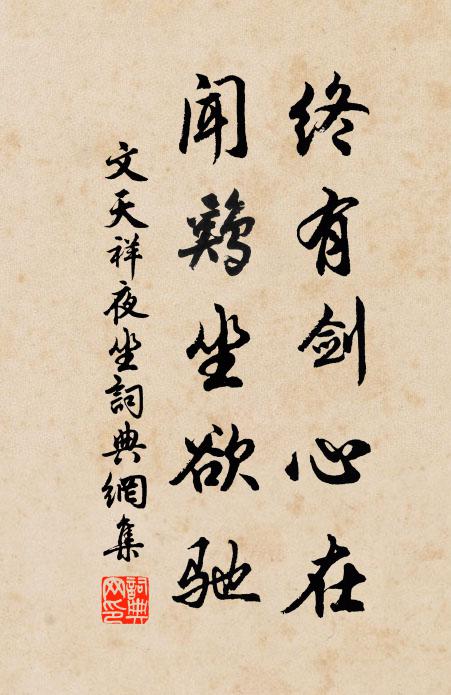 终有剑心在
闻鷄坐欲驰
文天祥夜坐詞典網集
詞典网印